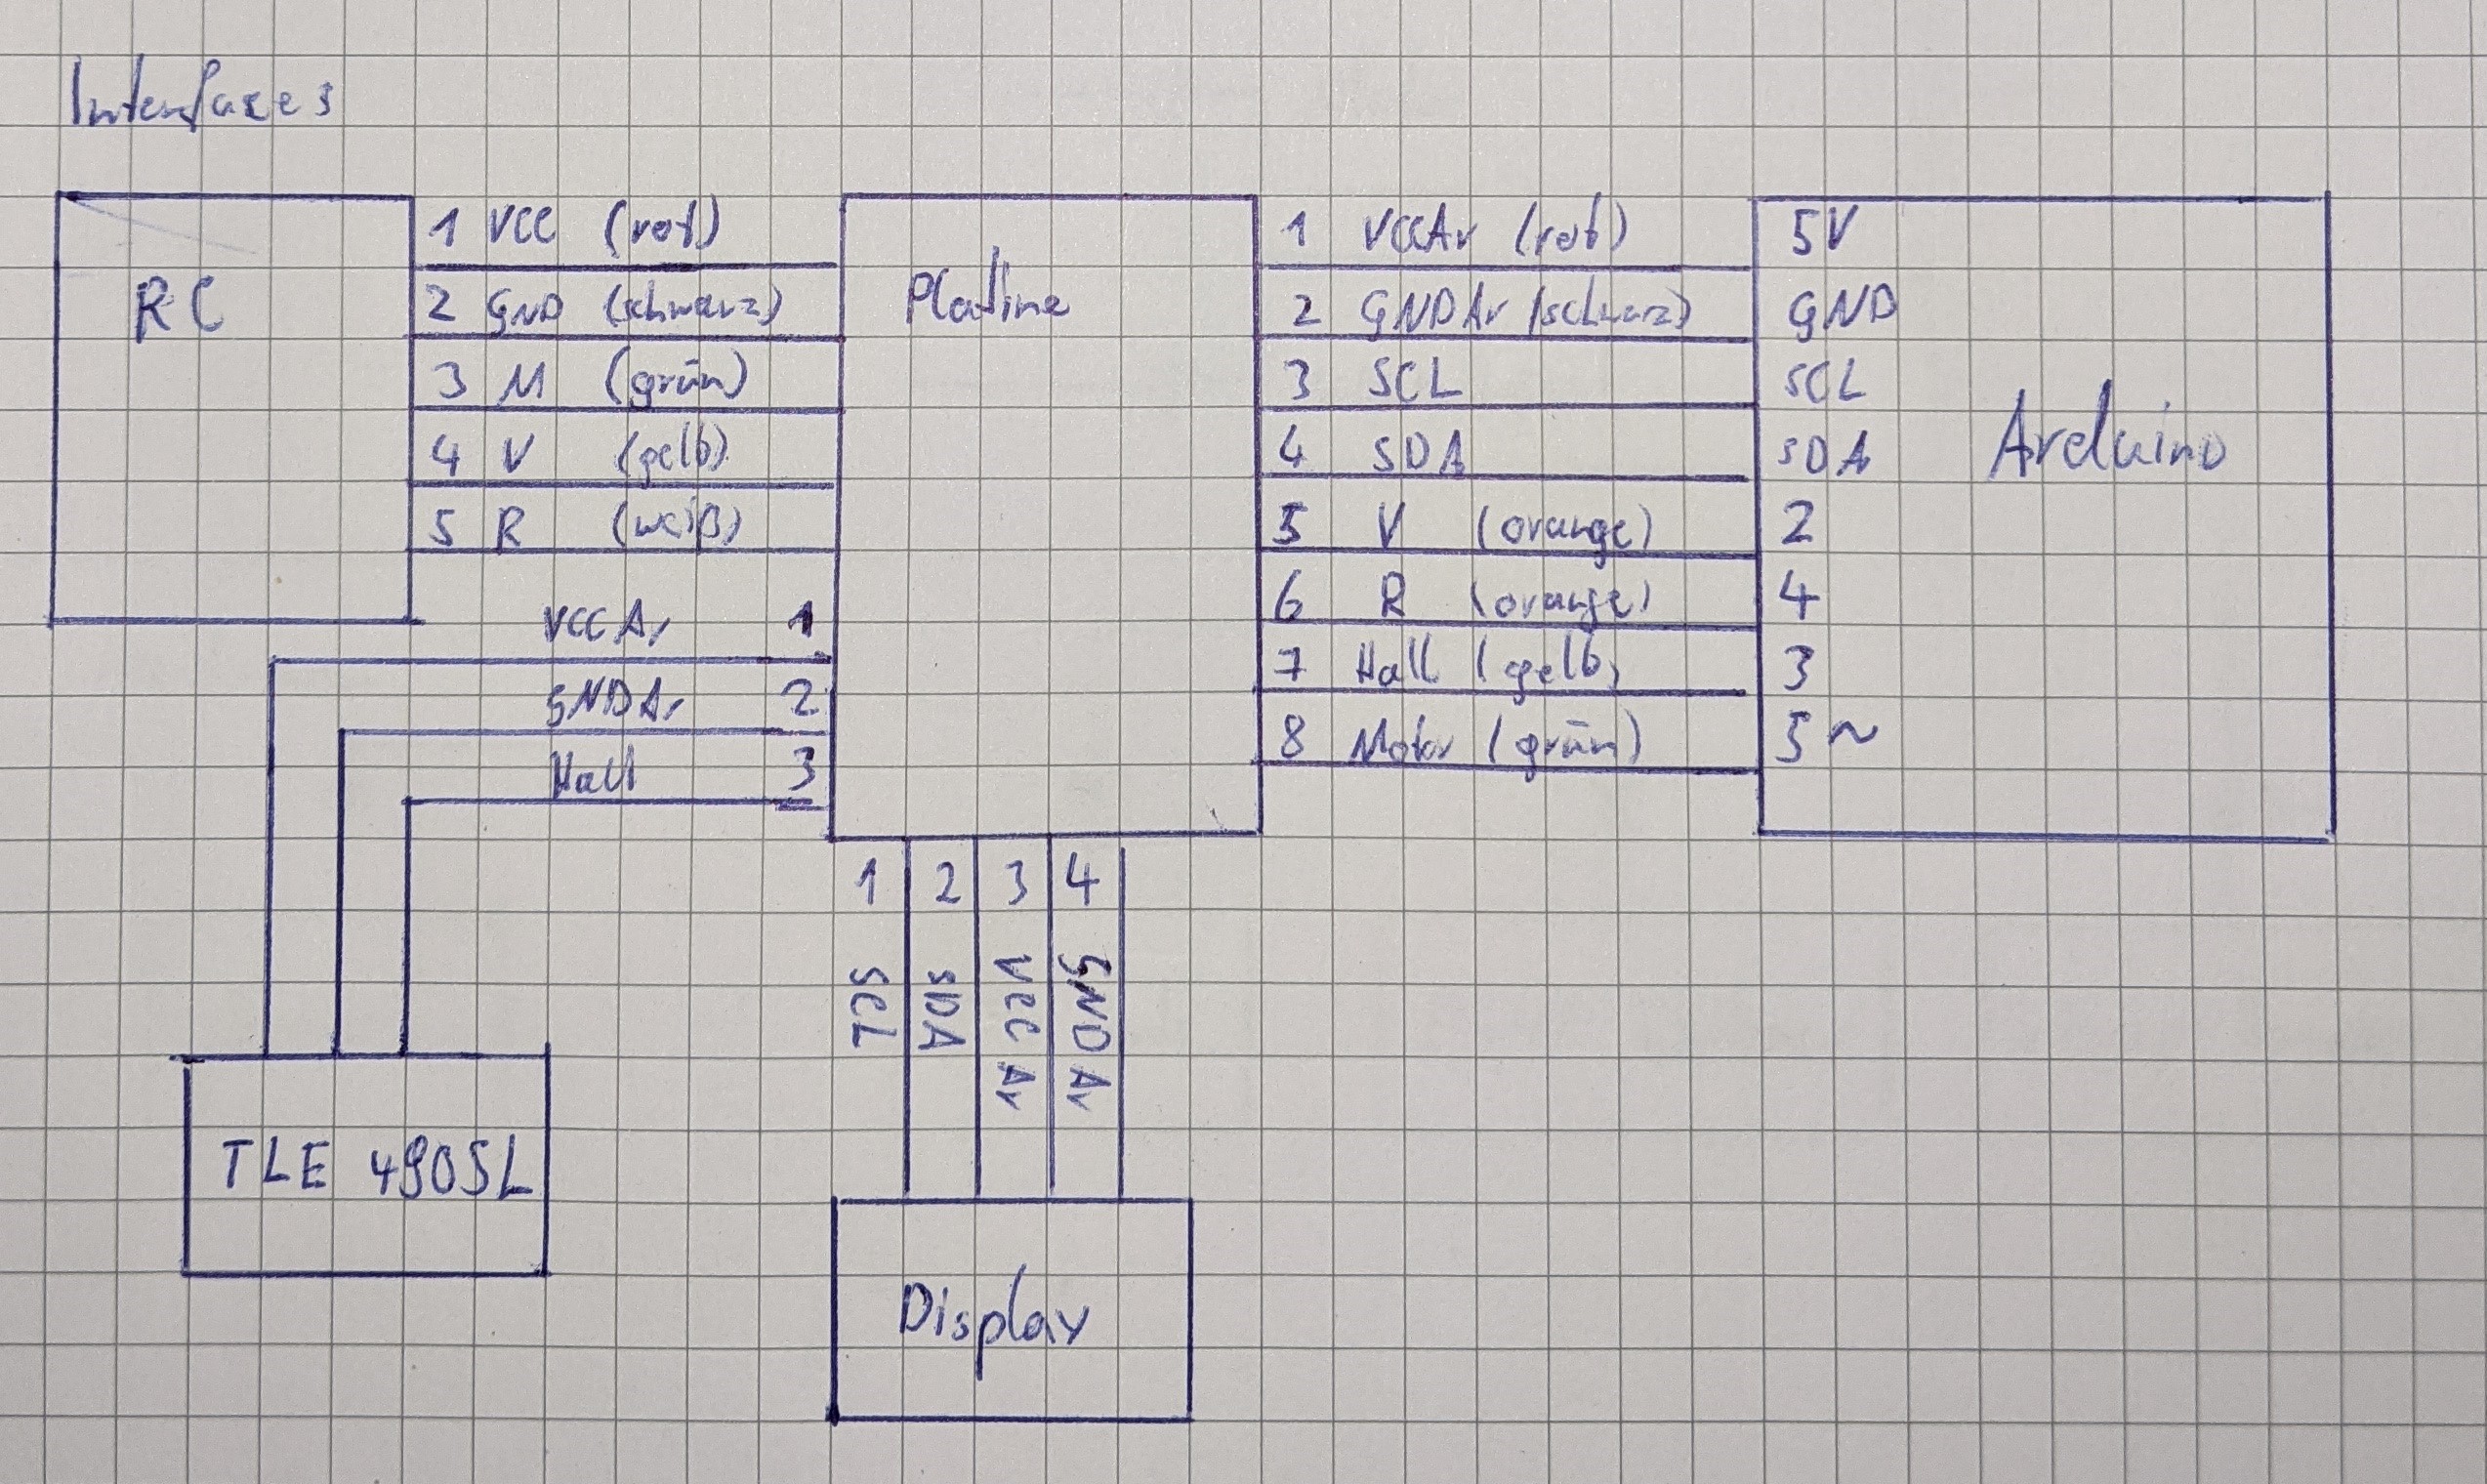 Interfaces
RC
1 VCC (rot)
2 GND (schwarz)
3 M (grün)
4 V (gelb)
5 R (weiß)
Platine
1 VCCAr (rot)
2 GNDAr (schwarz)
3 SCL
4 SDA
5 V (orange)
6 R (orange)
7 Hall (gelb)
8 Motor (grün)
5V
GND
SCL
SDA
2
4
3
5~
Arduino
VCCAr 1
GNDAr 2
Hall 3
TLE 4905L
1 SCL
2 SDA
3 VCC Ar
4 GND Ar
Display